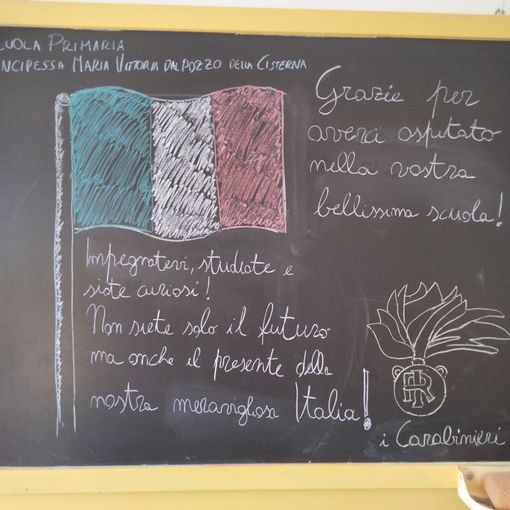 CUOLA PRIMARIA
NCIPESSA MARIA VITTORIA DAL POZZO DELLA CISTERNA
Grazie per
averci ospitato
nella vostra
bellissima scuola!
Impegnatevi, studiate e
siate curiosi!
Non siete solo il futuro
ma anche il presente della
nostra meravigliosa Italia!
RI
i Carabinieri